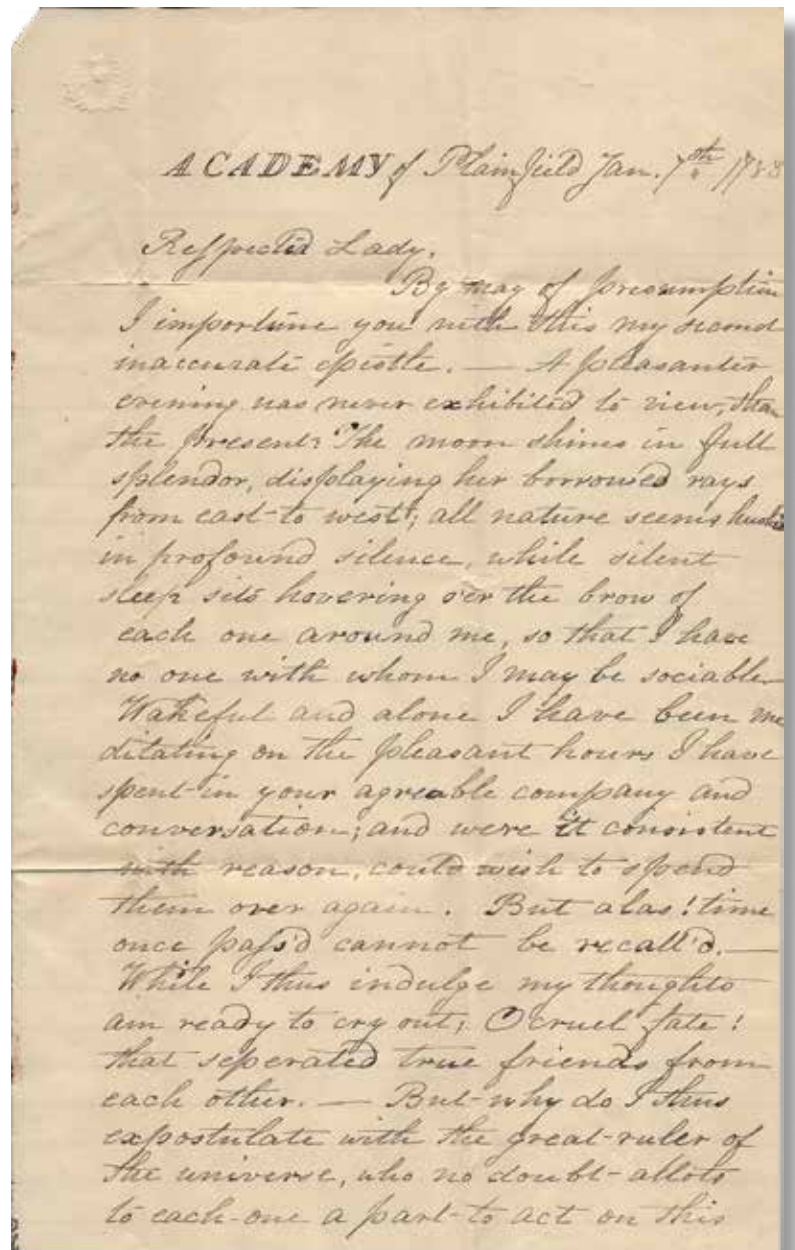 ACADEMY of Plainfield Jan. 7th 1788
Respected Lady.
By way of presumption
I importune you with this my second
inaccurate epistle. — A pleasanter
evening was never exhibited to view, than
the present: The moon shines in full
splendor, displaying her borrowed rays
from east to west; all nature seems
in profound silence, while silent
sleep sits hovering o'er the brow of
each one around me, so that I have
no one with whom I may be sociable
Wakeful and alone I have been me
ditating on the pleasant hours I have
spent in your agreable company and
conversation; and were it consistent
with reason, could wish to spend
them over again. But alas! time
once pass'd cannot be recall'd. —
While I thus indulge my thoughts
am ready to cry out; O cruel fate!
that seperated true friends from
each other. — But why do I thus
expostulate with the great ruler of
the universe, who no doubt allots
to each one a part to act on this